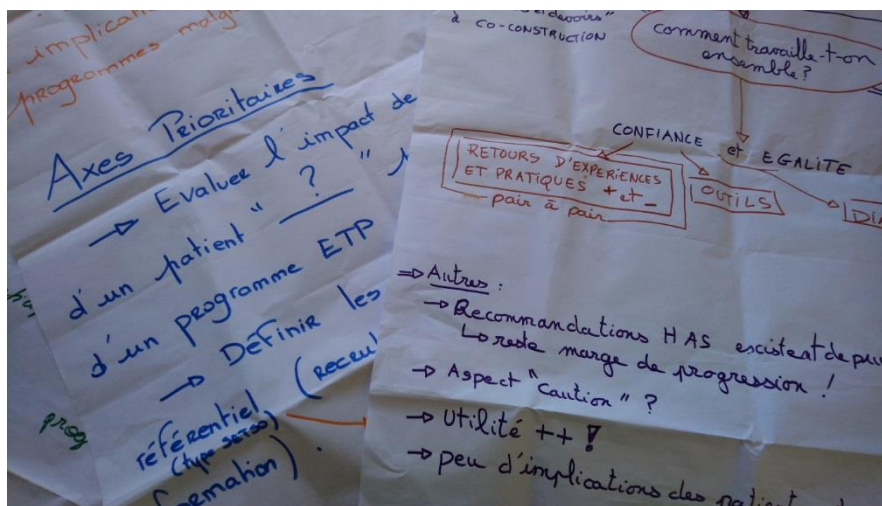 implication
programmes malg
Axes Prioritaires
→ Evaluer l'impact de
d'un patient " ? "
d'un programme ETP
→ Définir les
référentiel (recrut
(type SETSO)
formation).
prog
à co-construction
comment travaille-t-on
ensemble?
CONFIANCE et EGALITE
RETOURS D'EXPERIENCES
ET PRATIQUES + et -
pair à pair
OUTILS
DIA
⇒ Autres :
→ Recommandations HAS escistent depuis
↳ reste marge de progression !
→ Aspect "Caution" ?
→ Utilité ++ !
→ peu d'implications des patient